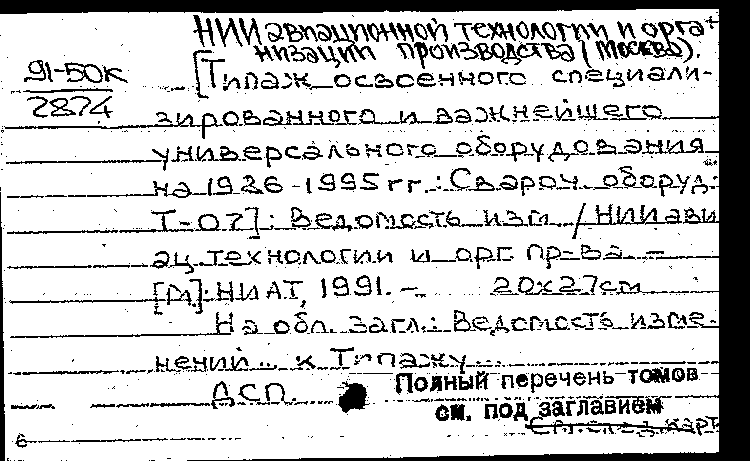 НИИ авиационной технологии и орга-
низации производства (Москва).
91-50к
2874
[Типаж освоенного специали-
зированного и важнейшего
универсального оборудования
на 1926-1995 гг.: Свароч. оборуд.:
Т-07]: Ведомость изм. / НИИ ави
ац. технологии и орг. пр-ва. –
[М]: НИАТ, 1991. – 20х27см
На обл. загл.: Ведомость изме-
нений... к Типажу...
ДСП
Полный перечень томов
см. под заглавием
См. след. карт
6